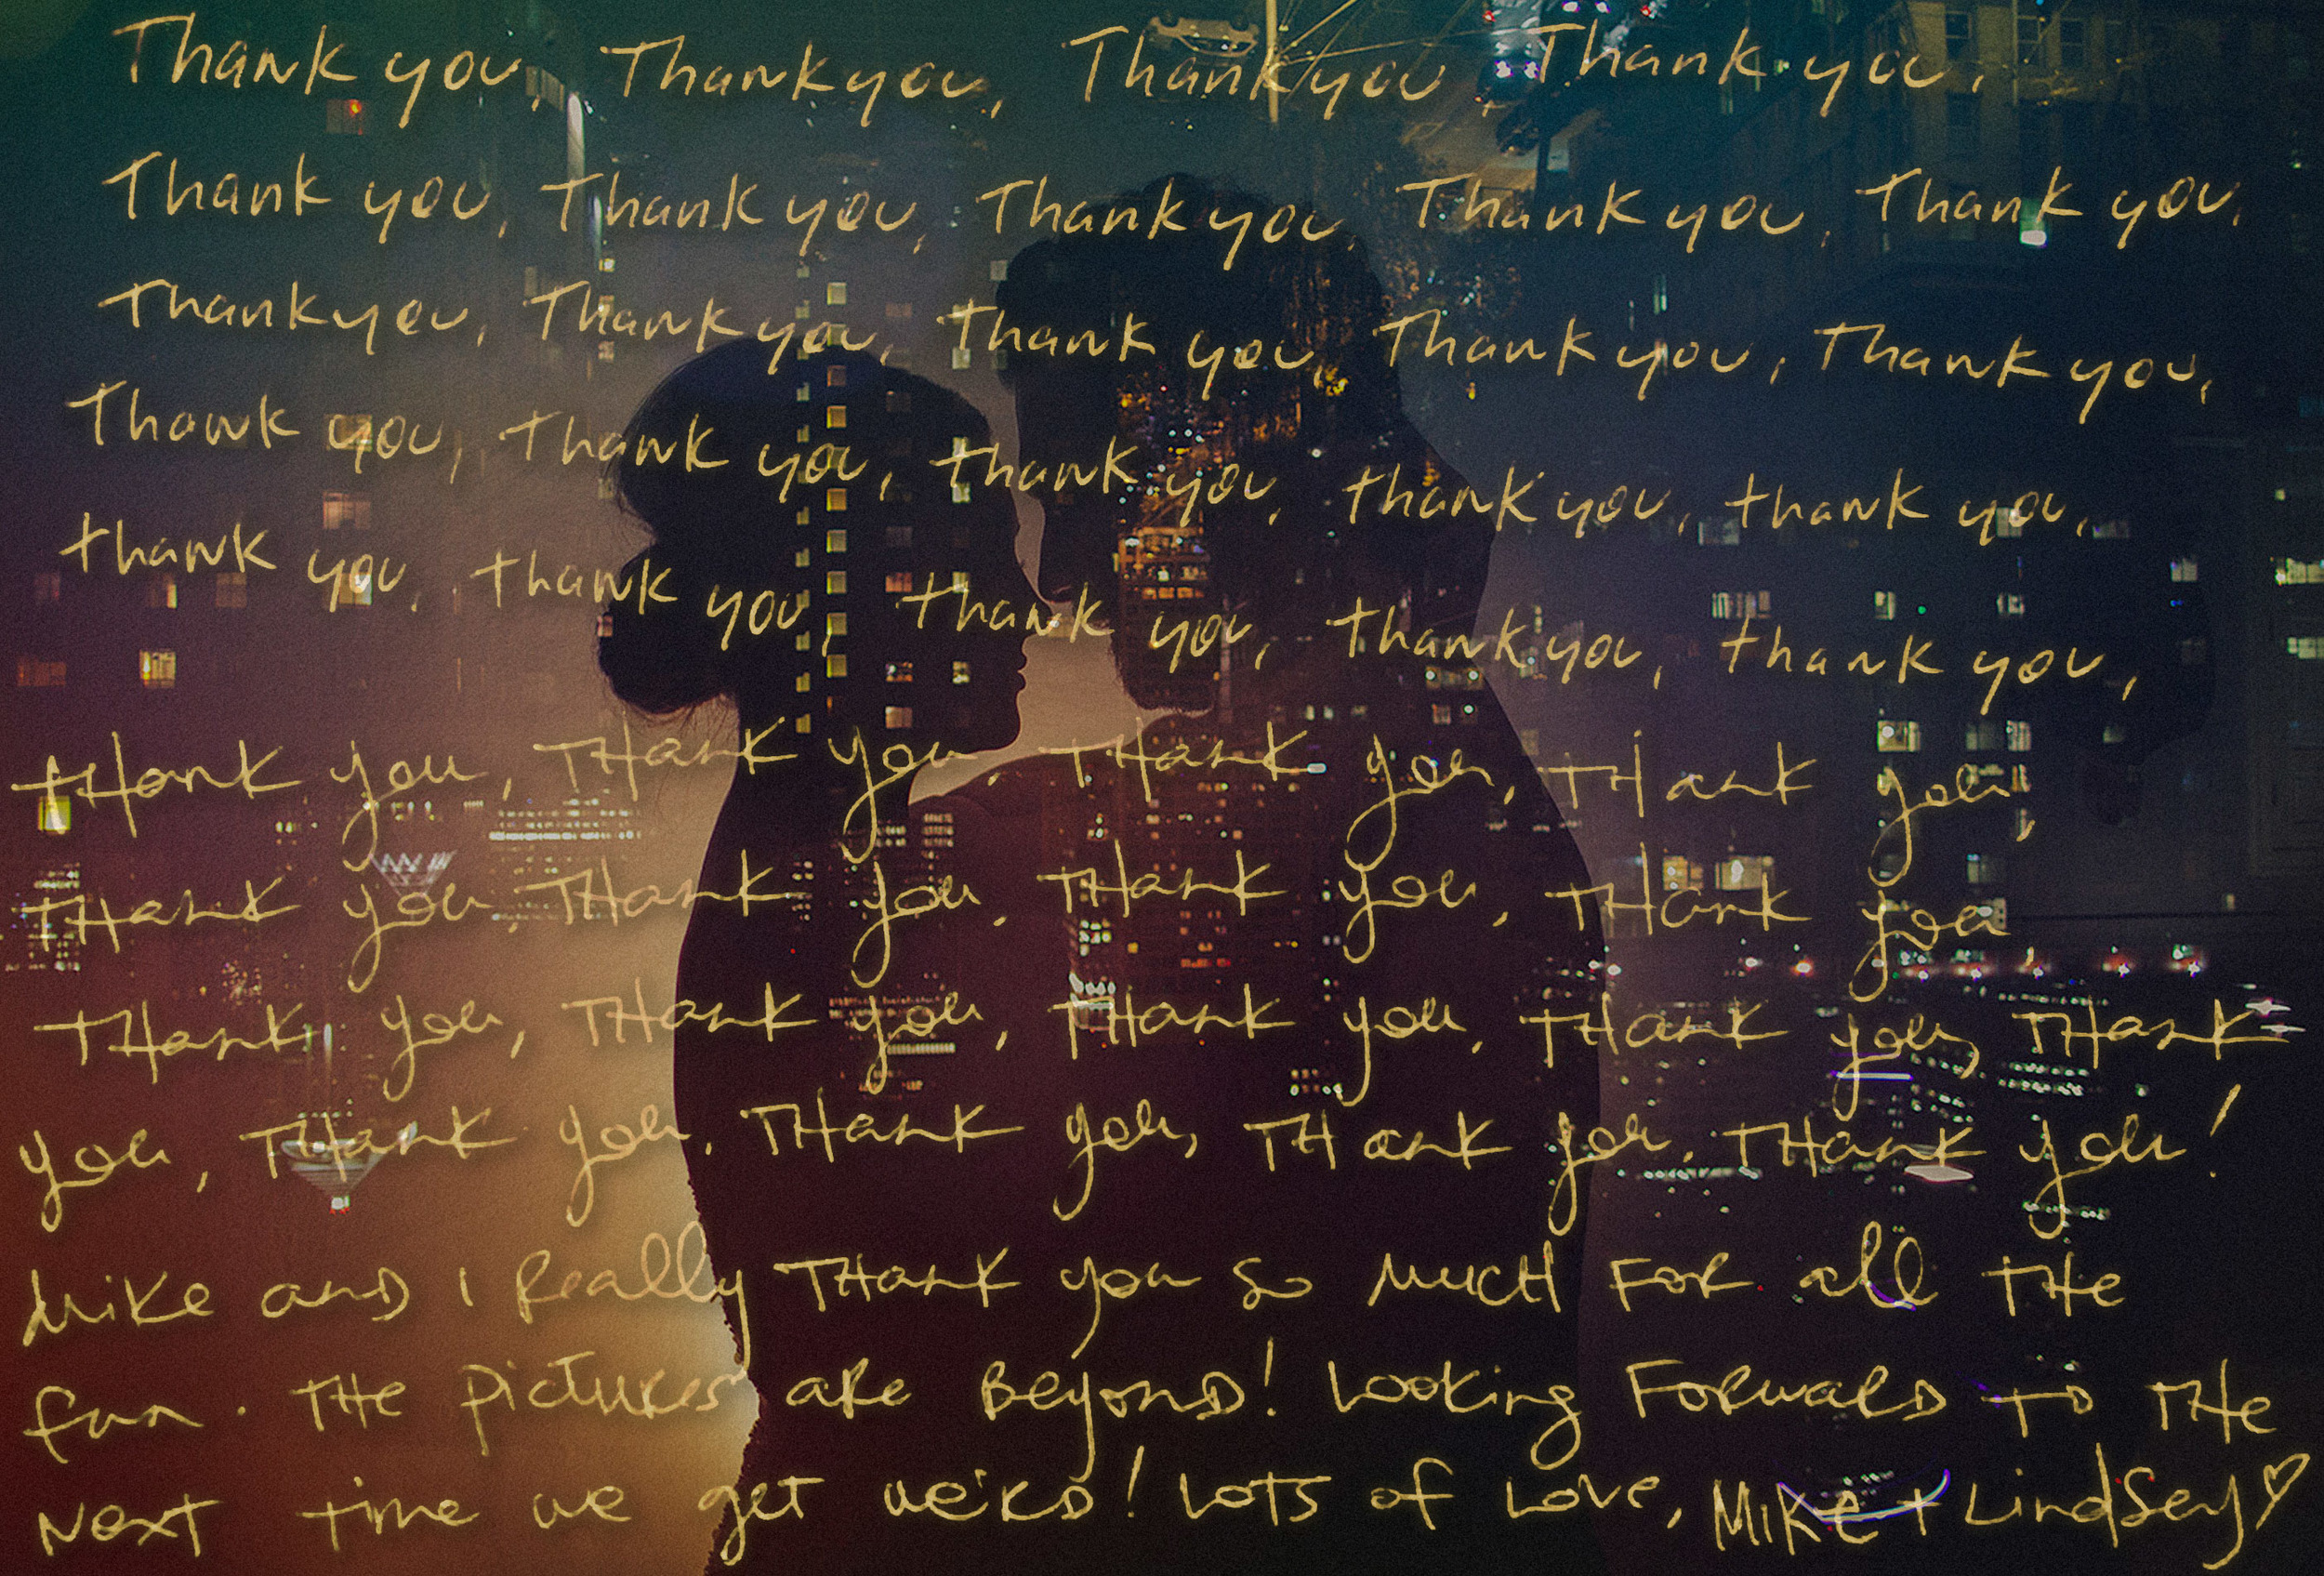 Thank you, Thank you, Thank you, Thank you,
Thank you, Thank you, Thank you, Thank you, Thank you,
Thank you, Thank you, Thank you, Thank you, Thank you,
Thank you, Thank you, thank you, thank you, thank you,
thank you, thank you, thank you, thank you, thank you,
THank you, THank you, THank you, THank you,
THank you, THank you, THank you, THank you,
THank you, THank you, THank you, THank you, THank
you, THank you, THank you, THank you, THank you!
Mike and I Really THank you so MucH FoR all THe
fun. THe pictures aRe Beyond! Looking FoRwaRD to THe
Next time we get weiRD! Lots of Love, Mike + Lindsey♡